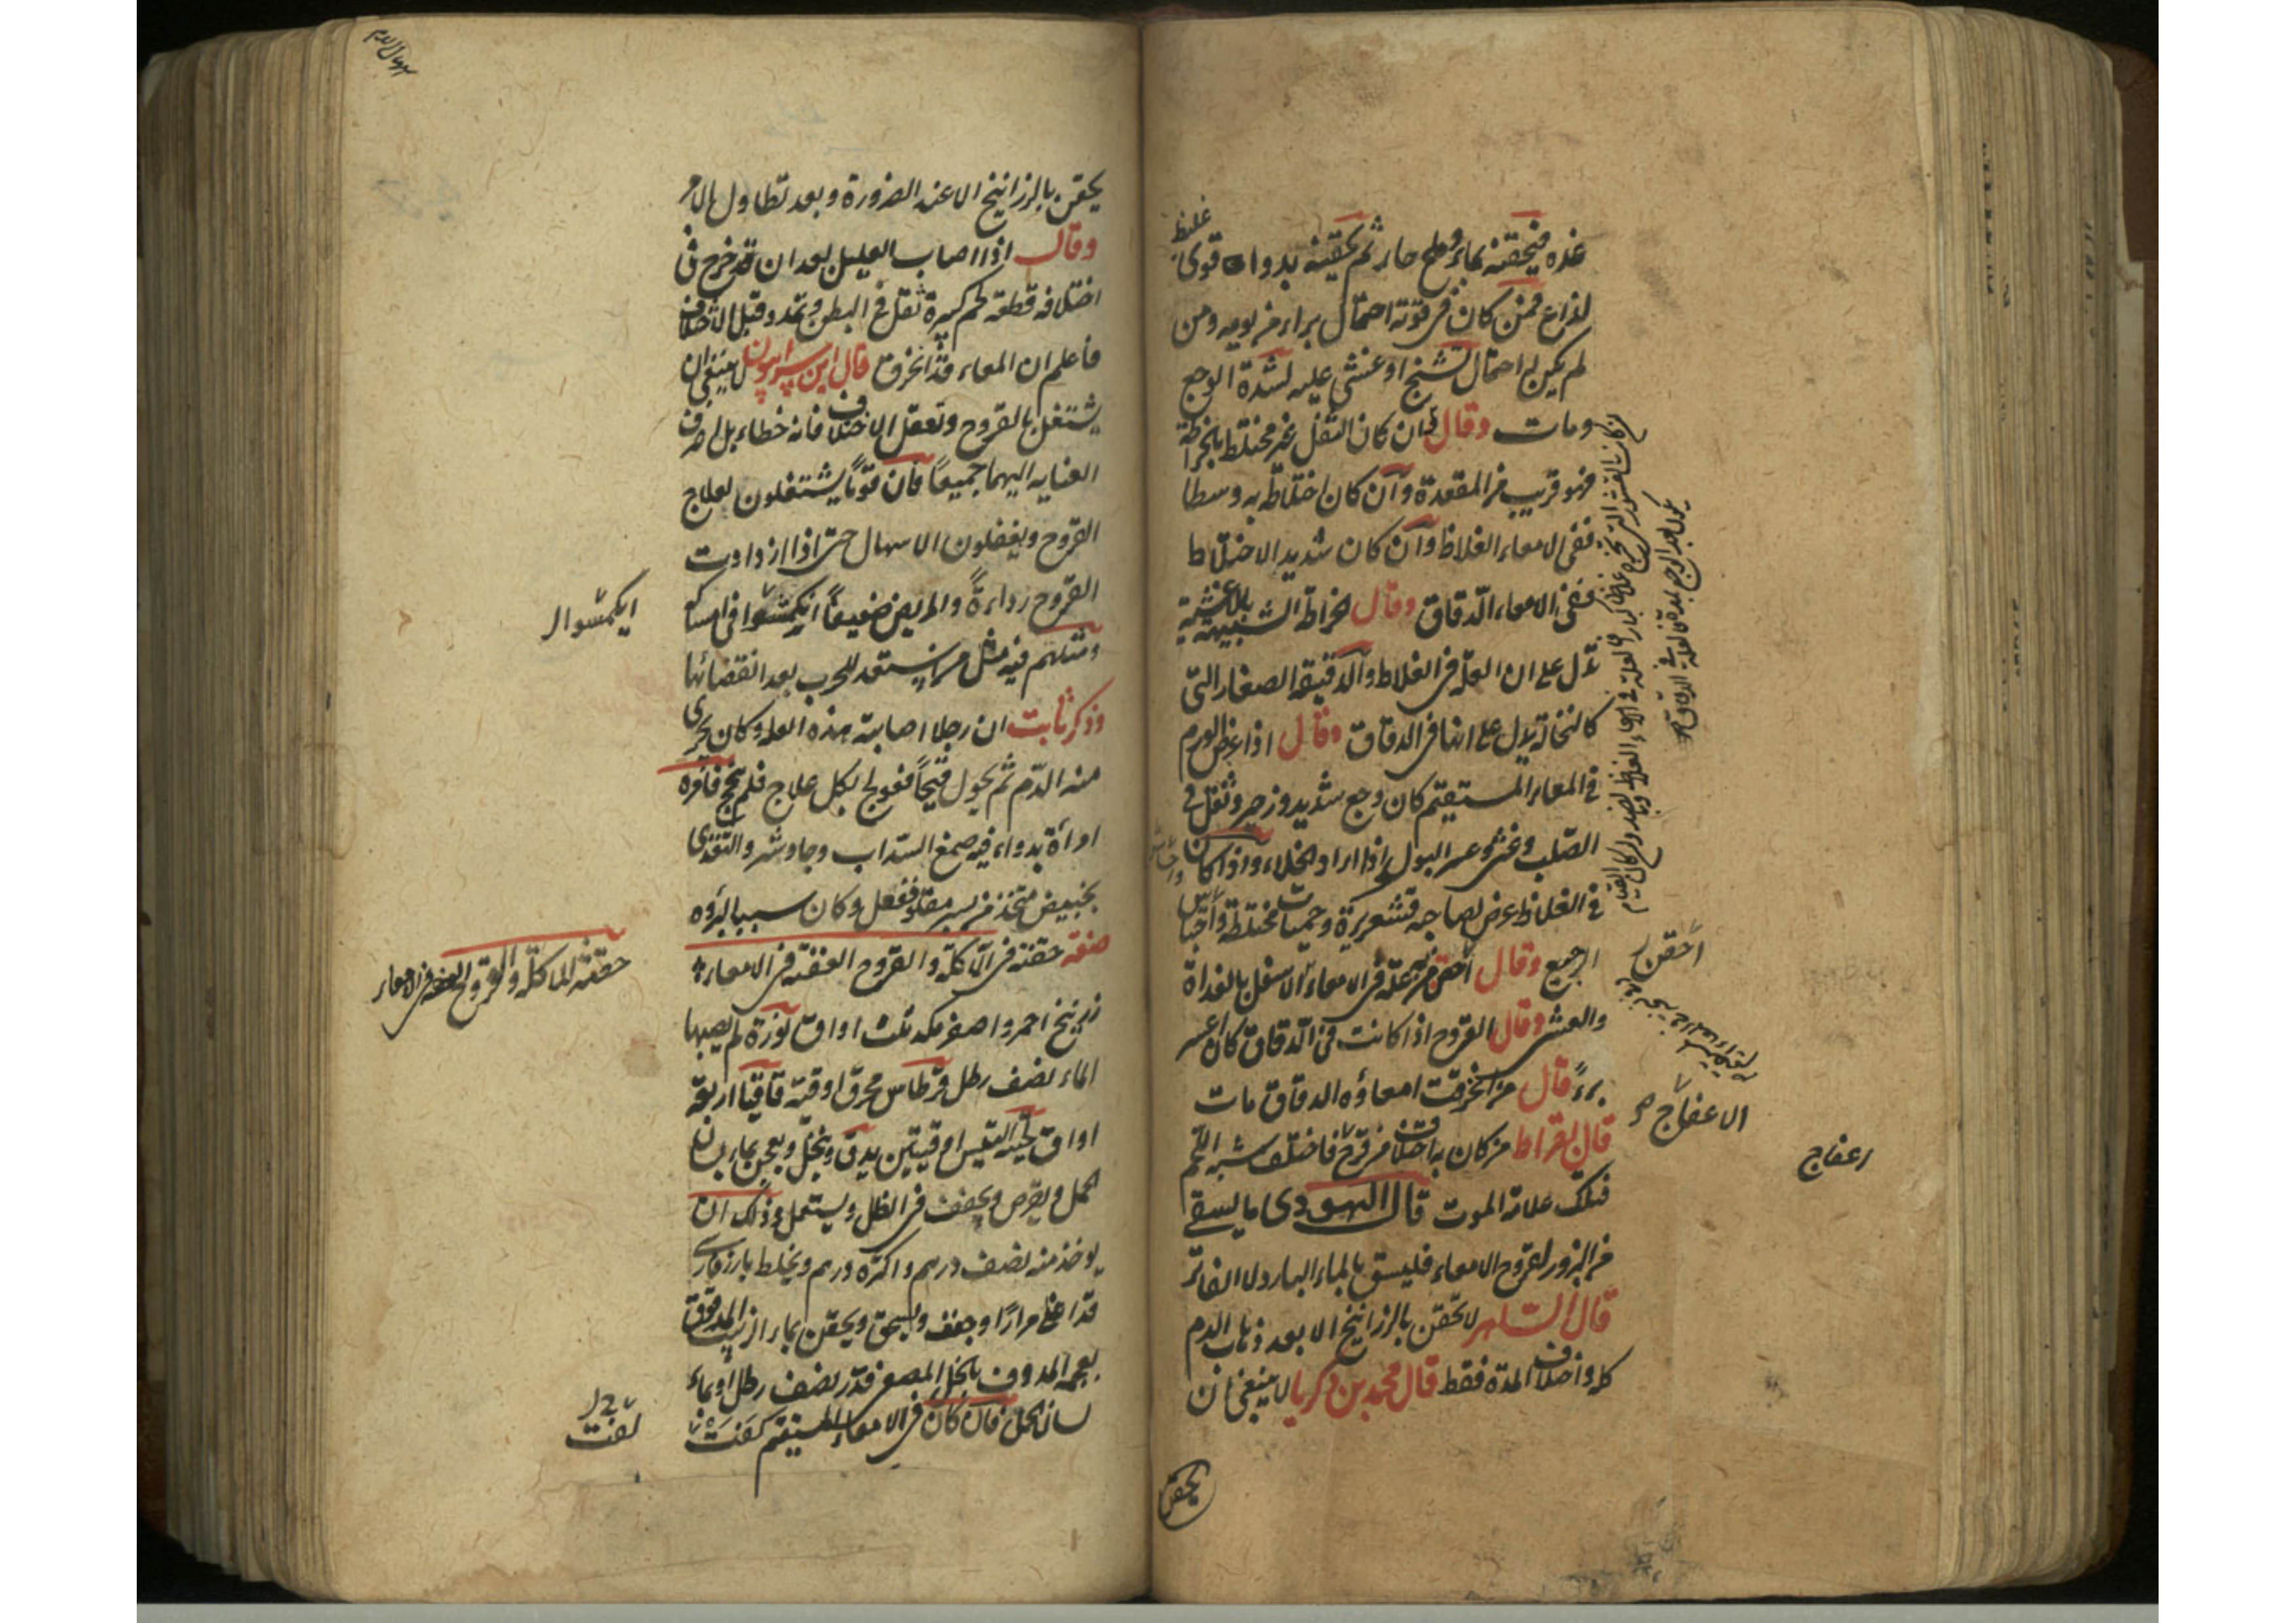 غليظ
غذه فيحقنه بماء وملح حار ثم يحقنه بدواء قوى
لذاع فمن كان فى قوته احتمال براء من يومه ومن
لم يكن له احتمال تشنج او غشى عليه لشدة الوجع
ومات وقال ان كان الثفل غير مختلط بالخراطة
فهو قريب من المقعدة وآن كان اختلاطه به وسطا
ففى الامعاء الغلاظ وآن كان شديد الاختلاط
ففى الامعاء الدقاق وقال الخراطة الشبيهة بالاغشية
تدل على ان العلة فى الغلاظ والدقيقة الصغار التى
كالنخالة تدل على انها فى الدقاق وقال اذا عرض الورم
فى المعاء المستقيم كان وجع شديد وزحير وثقل فى
الصلب وغشى وعسر البول اذا اراد الخلاء واذا كان
فى الغلاظ عرض لصاحبه قشعريرة وحميات مختلطة واحتباس
الرجيع وقال احقن من به علة فى الامعاء الاسفل بالغداة
والعشى وقال القروح اذا كانت فى الدقاق كان اعسر
برءً قال من انخرقت امعاؤه الدقاق مات
قال بقراط من كان به اختلاف من قرح فاختلف شبه اللحم
فتلك علامة الموت قال اليهودى ما يسقى
من البزور لقروح الامعاء فليسق بالماء البارد لا الفاتر
قال الساهر لا تحقن بالزرانيخ الا بعد ذهاب الدم
كله واختلاف المدة فقط قال محمد بن زكريا لا ينبغى ان
يحقن
احقن
الاعفاج
اعفاج
يحقن بالزرانيخ الا عند الضرورة وبعد تطاول الامر
وقال اذا اصاب العليل بعد ان قد خرج فى
اختلافه قطعة لحم كبيرة ثقل فى البطن وتمدد وقبل الاختلاف
فأعلم ان المعاء قد انخرق قال ابن سرابيون ينبغى ان
يشتغل بالقروح وتعقل الاختلاف فانه خطاء بل اصرف
العناية اليهما جميعاً فان قوماً يشتغلون بعلاج
القروح ويغفلون الاسهال حتى اذا ازدادت
القروح رداءةً والمريض ضعيفاً انكمشوا فى امساكه
ومثلهم فيه مثل من يستعد للحرب بعد انقضائها
وذكر ثابت ان رجلا اصابته هذه العلة وكان يجرى
منه الدم ثم تحول قيحاً فعولج بكل علاج فلم ينجح فأمره
امرأة بدواء فيه صمغ السداب وجاوشير والتغذى
بخبيص متخذ من بسر مقلو ففعل وكان سببا لبرؤه
صفة حقنة فى الآكلة والقروح العفنة فى الامعاء
زرنيخ احمر واصفر مكد ثلث اواق نورة لم يصبها
الماء نصف رطل قرطاس محرق اوقية قاقيا اربعة
اواق لحية التيس اوقيتين يدق وينخل ويعجن بماء لسان
الحمل ويقرص ويجفف فى الظل ويستعمل وذلك ان
يوخذ منه نصف درهم واكثره درهم ويخلط بارز فارسى
قد اغلى مرارا وجفف وسحق ويحقن بماء الزبيب المدقوق
بعجمه المدوف بالخل المصعر قدر نصف رطل او بماء
لسان الحمل فان كان فى الامعاء المستقيم كفت
حقنة للماكلة والقروح العفنة فى الامعاء